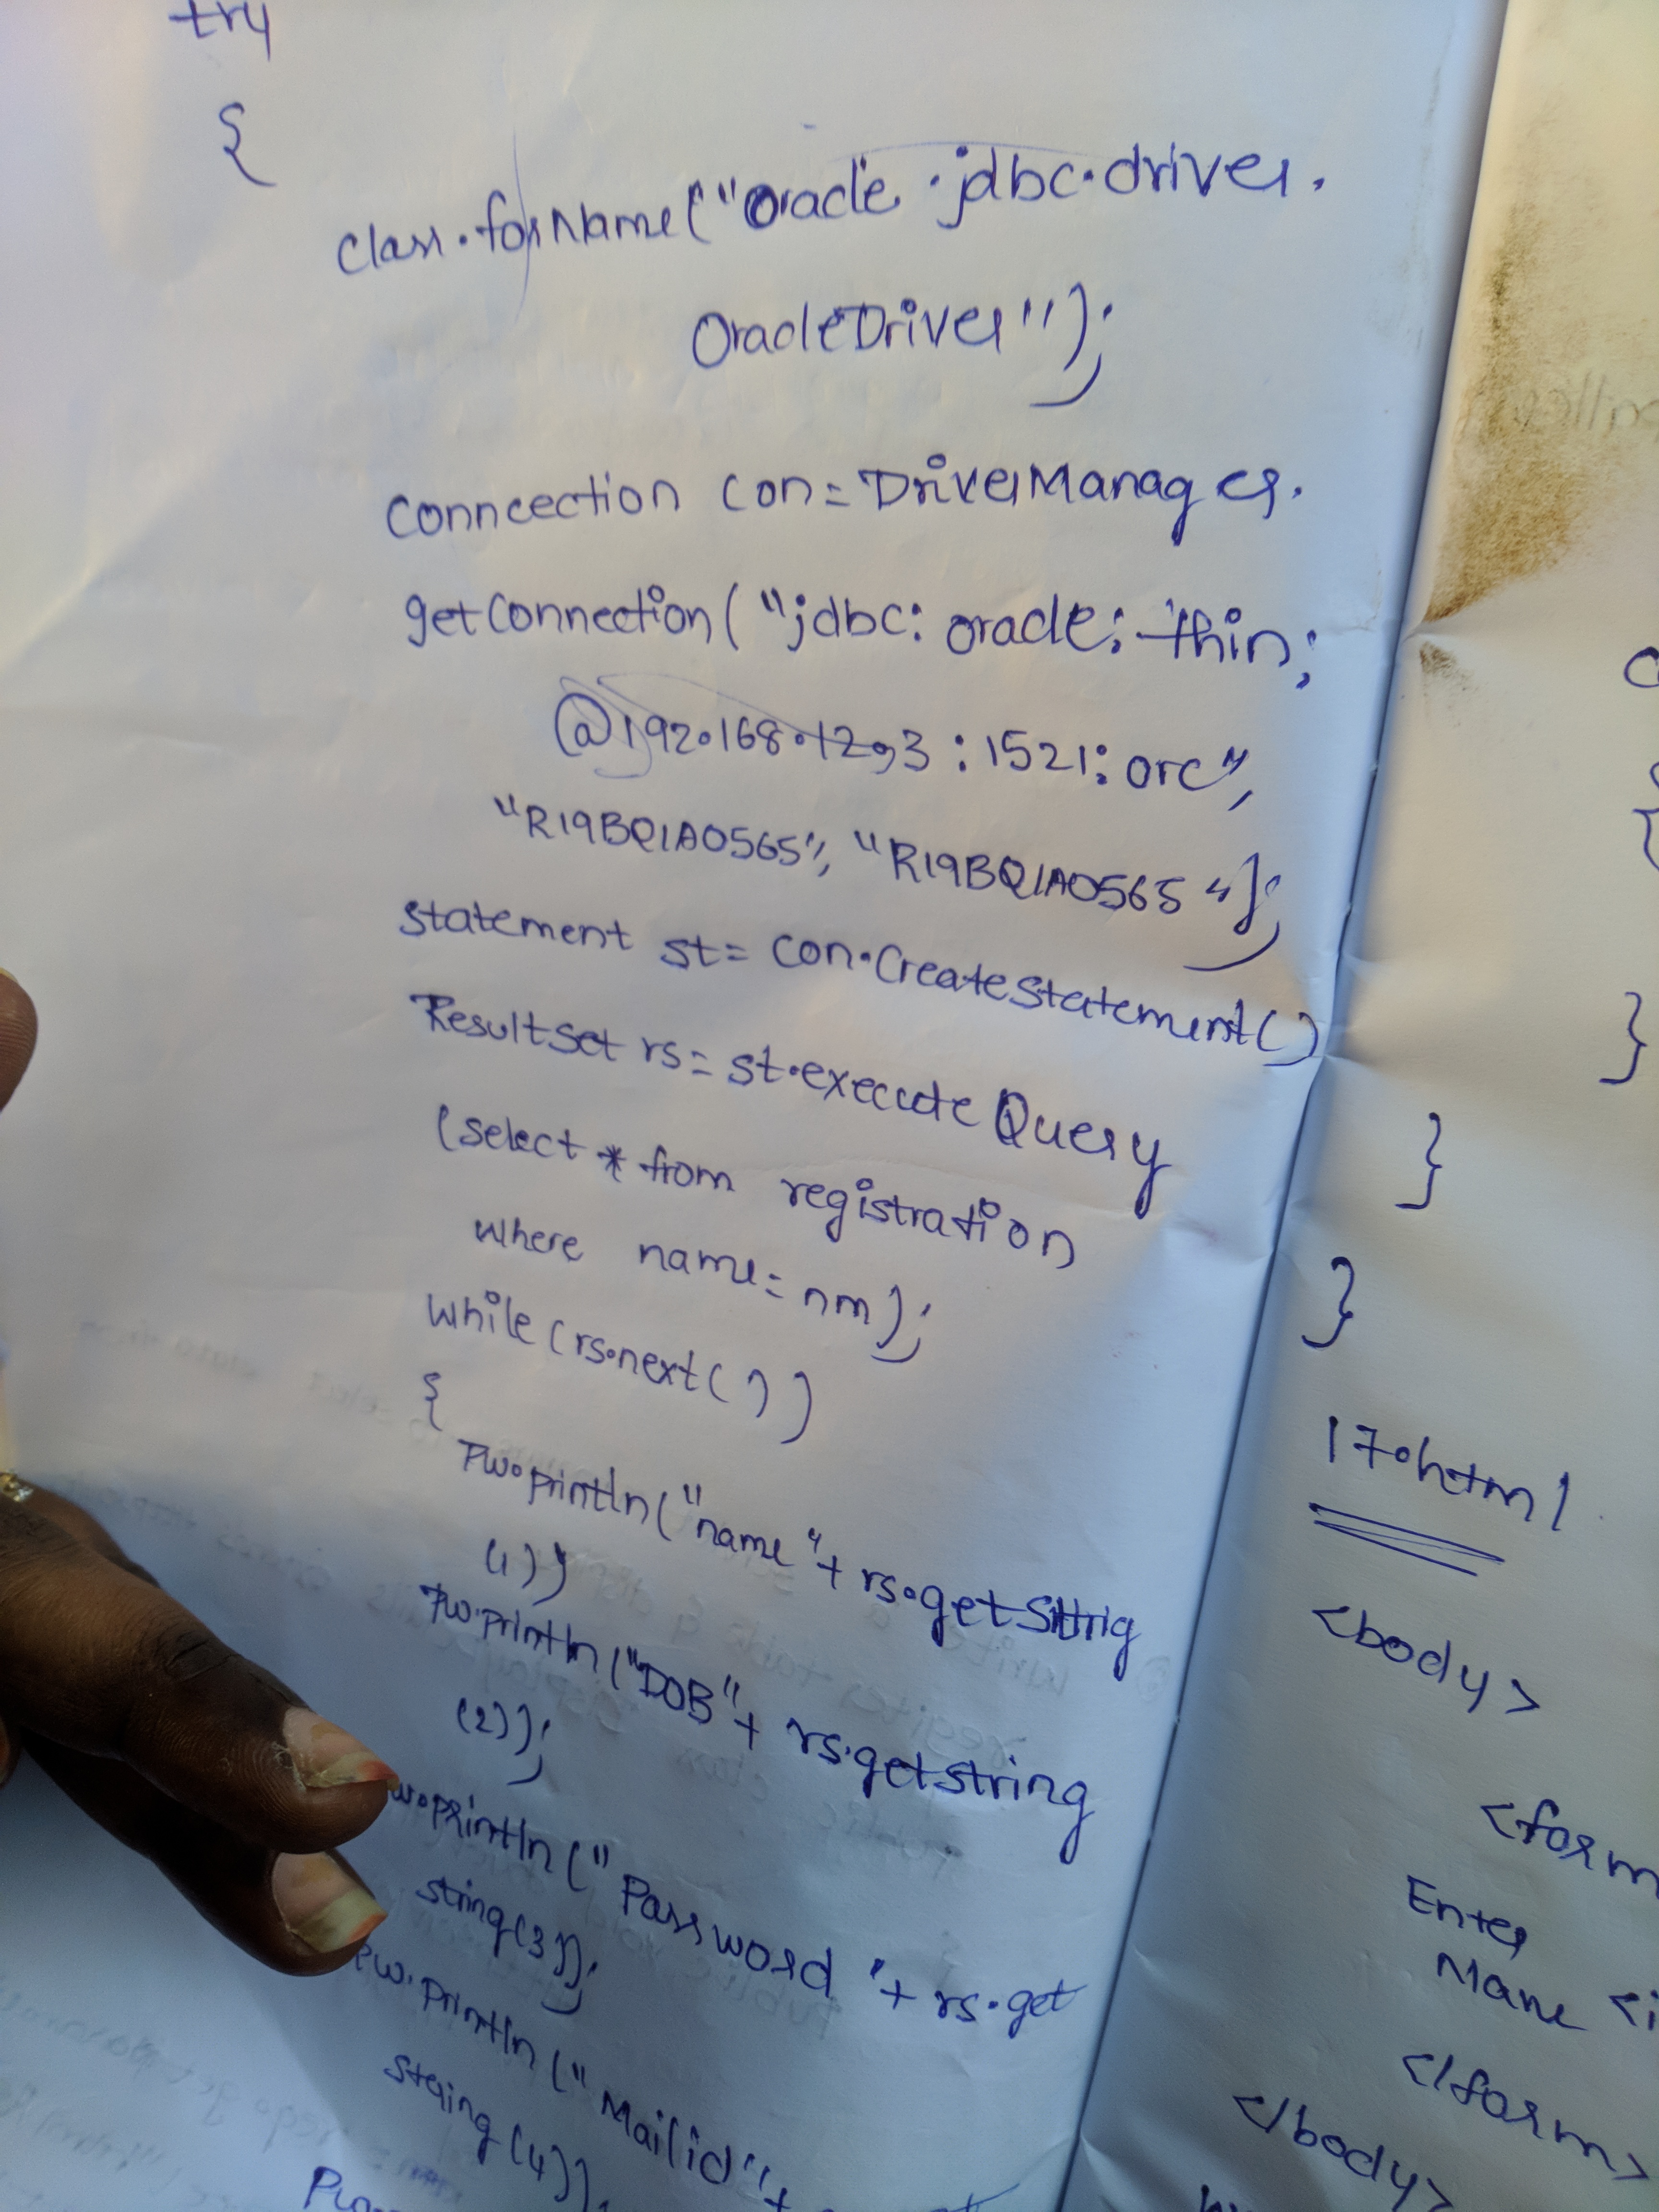 try
{
class.forName("oracle.jdbc.driver.
OracleDriver");
conncection con=DriverManager.
getConnection("jdbc: oracle: thin:
@192.168.12.3:1521:orc",
"R19BQ1A0565", "R19BQ1A0565");
statement st= con.CreateStatement()
ResultSet rs= st.execute Query
(select * from registration
where name= nm);
while (rs.next())
{
Pw.println("name"+ rs.getString
(1))
Pw.println("DOB"+ rs.getstring
(2));
w.println("Password "+ rs.get
string(3));
Pw.println("Mailid"+
string(4));
}
}
}
17.html
<body>
<form
Enter
Name <i
</form>
</body>